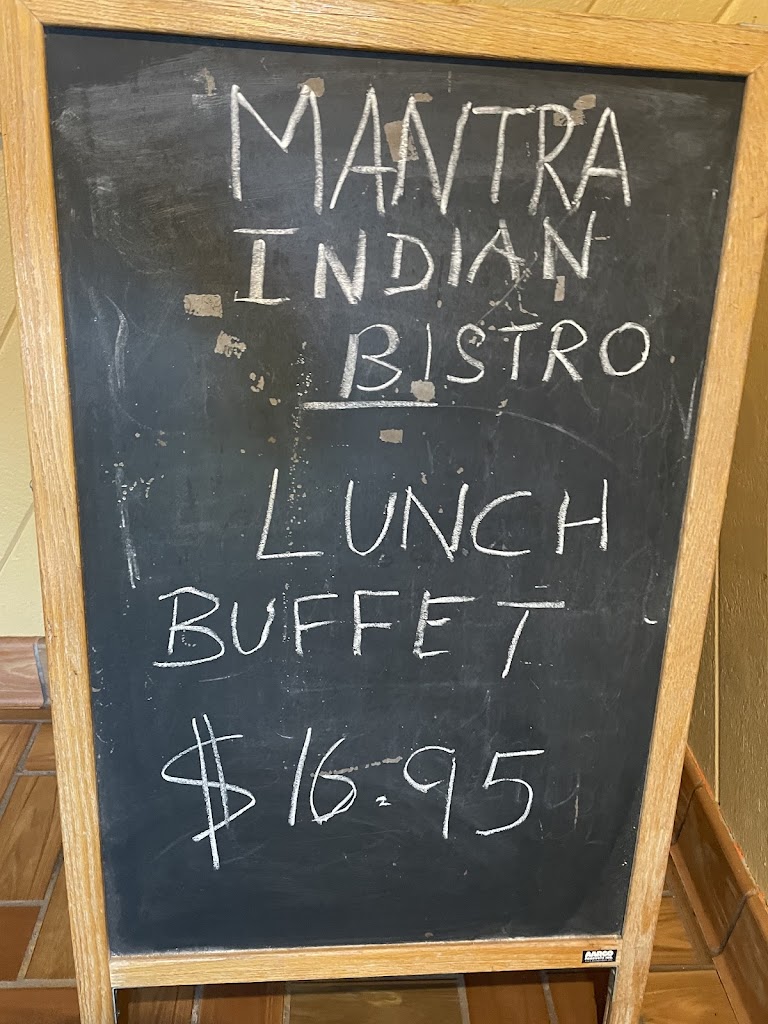 MANTRA
INDIAN
BISTRO
LUNCH
BUFFET
$16.95
AARCO